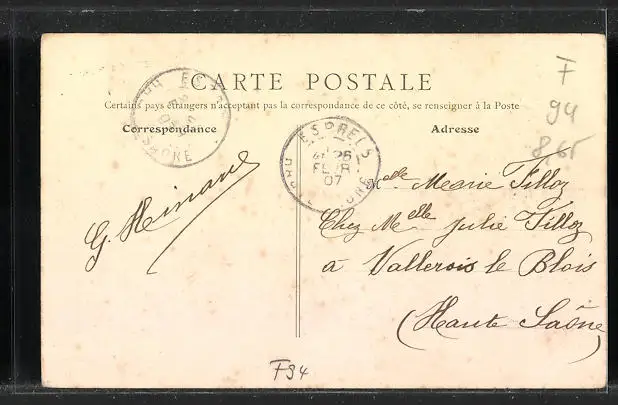 CARTE POSTALE
Certains pays étrangers n'acceptant pas la correspondance de ce côté, se renseigner à la Poste
Correspondance
Adresse
F
94
8,65
ESPRELS
25
FEVR
07
Melle Marie Tilloz
Chez Melle Julie Tilloz
à Vallerois le Bois
(Haute Saône)
F94